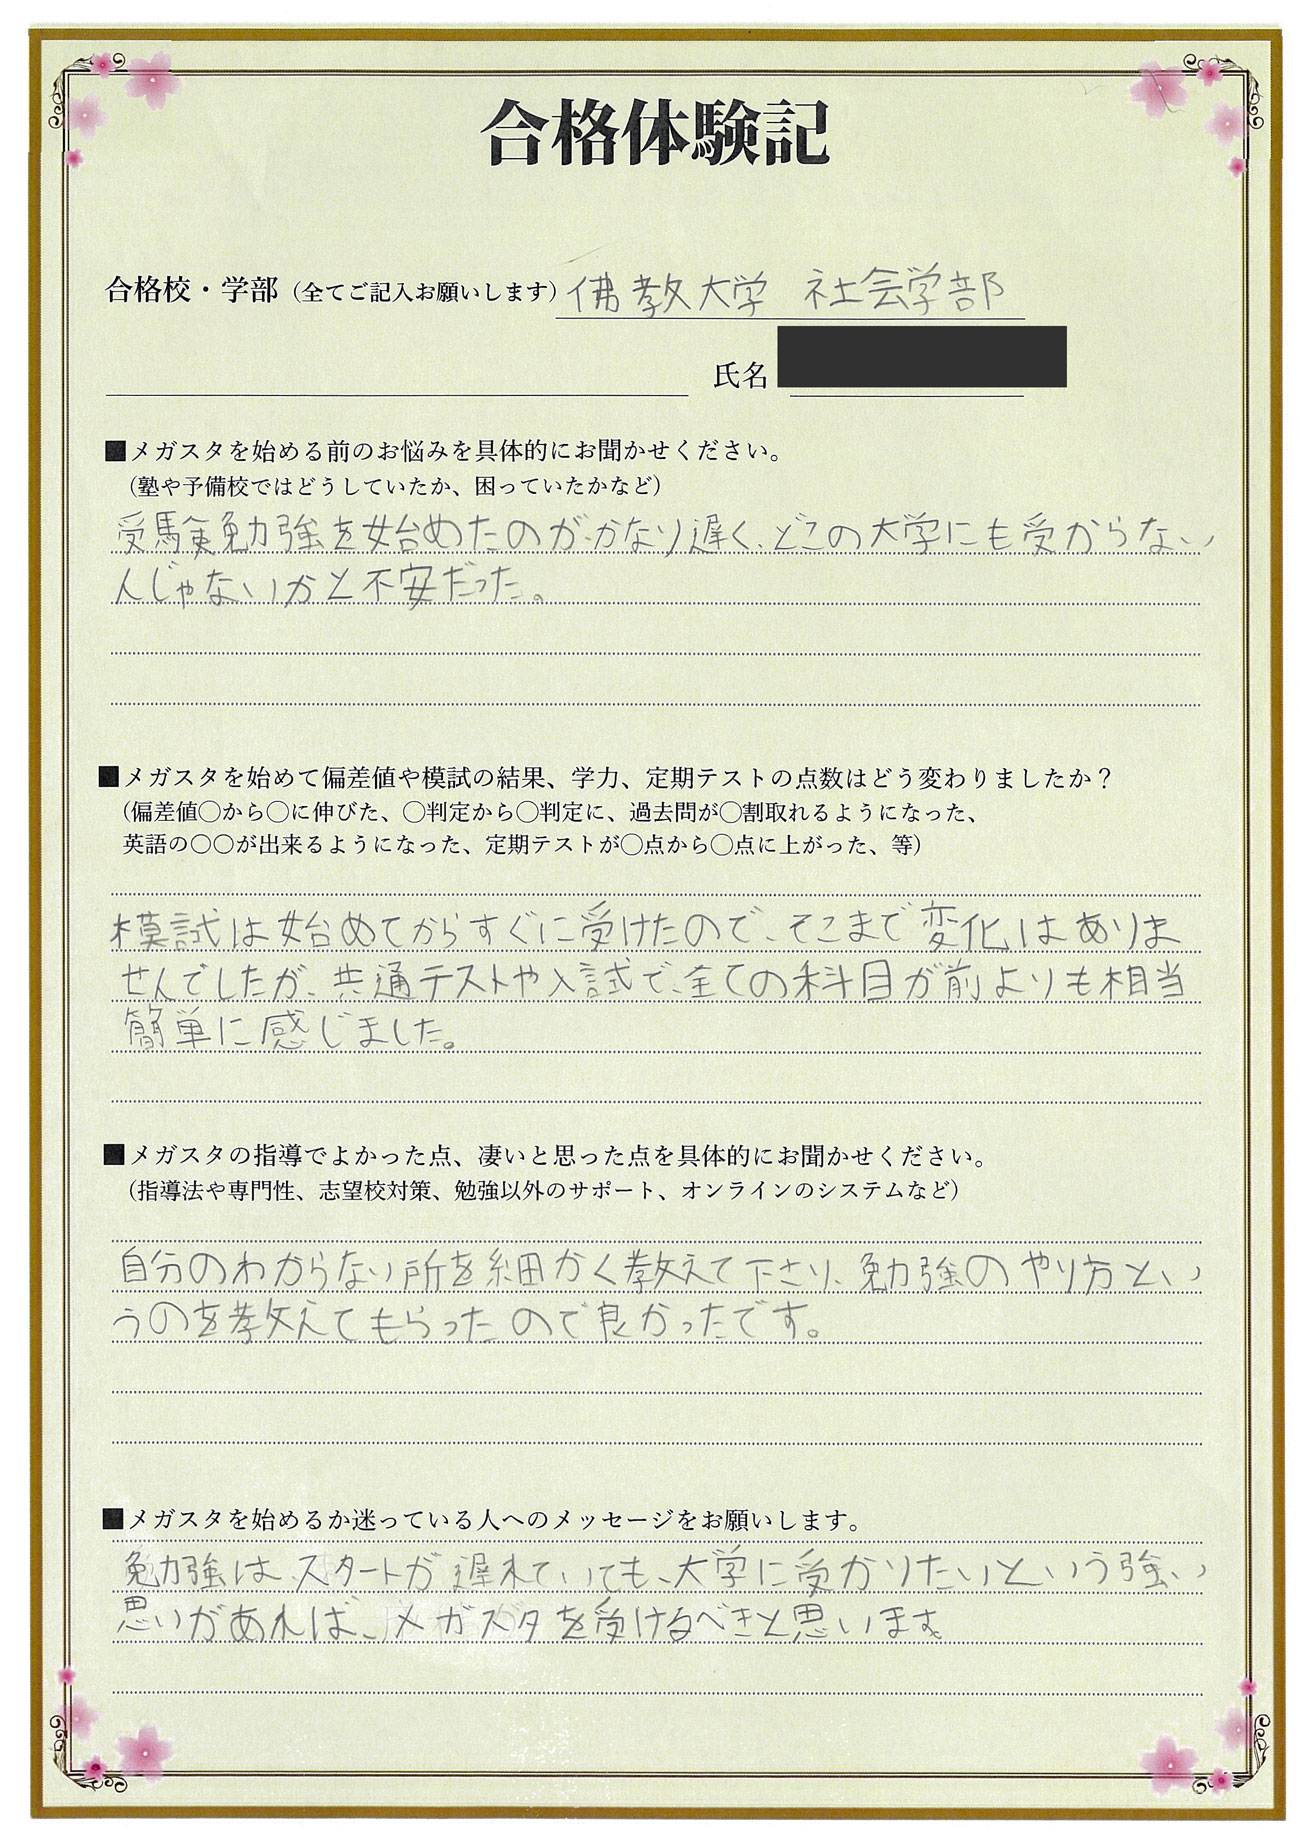 合格体験記
合格校・学部（全てご記入お願いします）佛教大学 社会学部
氏名
■メガスタを始める前のお悩みを具体的にお聞かせください。
（塾や予備校ではどうしていたか、困っていたかなど）
受験勉強を始めたのがかなり遅く、どこの大学にも受からない
んじゃないかと不安だった。
■メガスタを始めて偏差値や模試の結果、学力、定期テストの点数はどう変わりましたか？
（偏差値〇から〇に伸びた、〇判定から〇判定に、過去問が〇割取れるようになった、
英語の〇〇が出来るようになった、定期テストが〇点から〇点に上がった、等）
模試は始めてからすぐに受けたので、そこまで変化はありま
せんでしたが、共通テストや入試で、全ての科目が前よりも相当
簡単に感じました。
■メガスタの指導でよかった点、凄いと思った点を具体的にお聞かせください。
（指導法や専門性、志望校対策、勉強以外のサポート、オンラインのシステムなど）
自分のわからない所を細かく教えて下さり、勉強のやり方とい
うのを教えてもらったので良かったです。
■メガスタを始めるか迷っている人へのメッセージをお願いします。
勉強はスタートが遅れていても、大学に受かりたいという強い
思いがあれば、メガスタを受けるべきと思います。